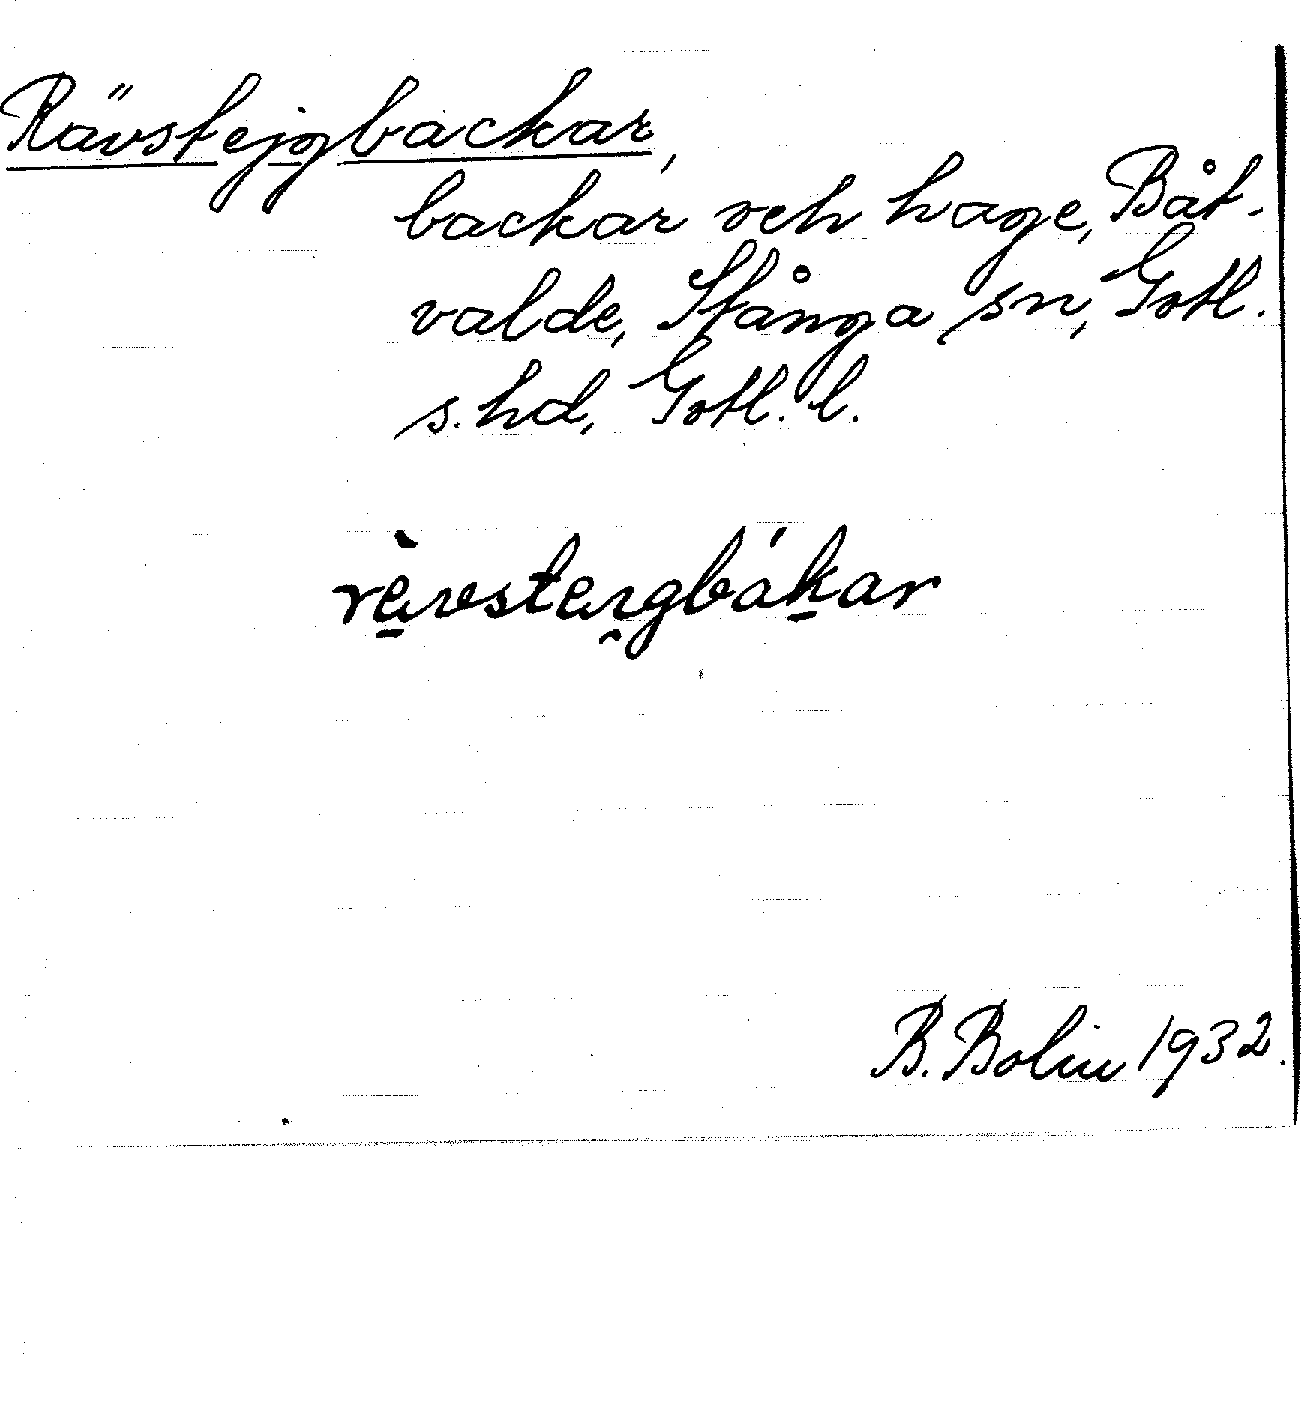 Rävstejgbackar,
backar och hage, Båt-
valde, Stånga sn, Gotl.
s. hd, Gotl. l.
rèvsteıgbákar
B. Bolin 1932.